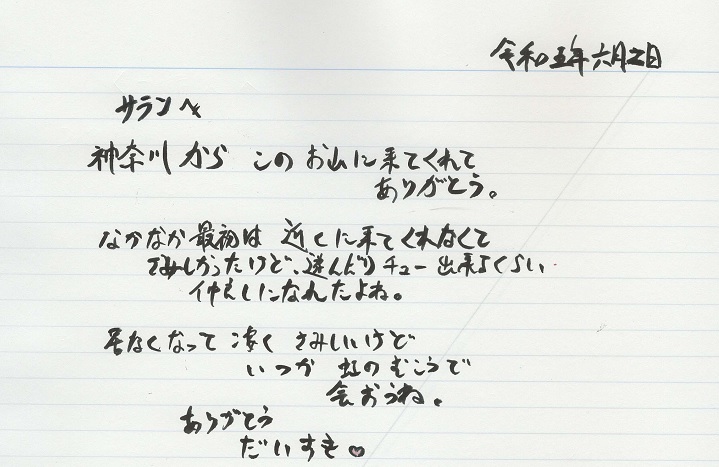 令和五年六月二日
サランへ
神奈川から このお山に来てくれて
ありがとう。
なかなか最初は 近くに来てくれなくて
さみしかったけど、遊んだりチュー出来るくらい
仲良しになれたよね。
居なくなって凄くさみしいけど
いつか 虹のむこうで
会おうね。
ありがとう
だいすき♥